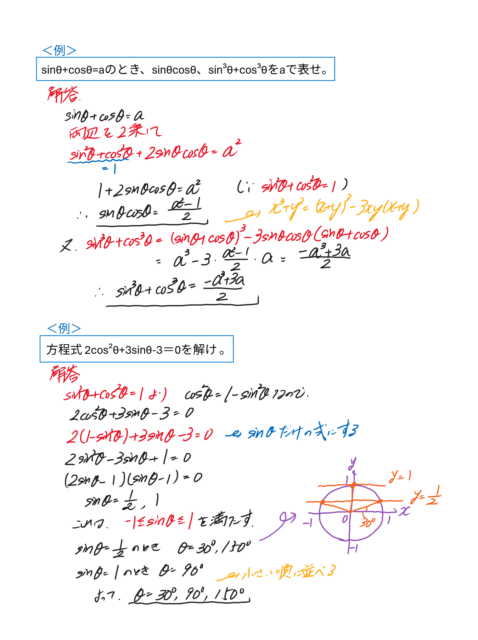 ＜例＞
sinθ+cosθ=aのとき、sinθcosθ、sin³θ+cos³θをaで表せ。
解答.
sinθ+cosθ=a
両辺を2乗して
sin²θ+cos²θ+2sinθcosθ=a²
=1
1+2sinθcosθ=a² (∵ sin²θ+cos²θ=1)
∴ sinθcosθ= (a²-1)/2
x³+y³=(x+y)³-3xy(x+y)
又、sin³θ+cos³θ=(sinθ+cosθ)³-3sinθcosθ(sinθ+cosθ)
=a³-3・(a²-1)/2・a= (-a³+3a)/2
∴ sin³θ+cos³θ= (-a³+3a)/2
＜例＞
方程式 2cos²θ+3sinθ-3＝0を解け 。
解答
sin²θ+cos²θ=1より cos²θ=1-sin²θなので.
2cos²θ+3sinθ-3=0
2(1-sin²θ)+3sinθ-3=0 sinθだけの式にする
2sin²θ-3sinθ+1=0
(2sinθ-1)(sinθ-1)=0
sinθ=1/2, 1
これは、-1≤sinθ≤1を満たす.
sinθ=1/2のとき θ=30°,150°
sinθ=1のとき θ=90° 小さい順に並べる
よって、θ=30°, 90°, 150°
y
1
y=1
y=1/2
-1
0
30°
1
x
-1